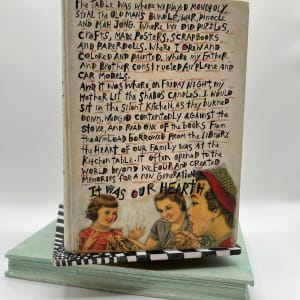 THE TABLE WAS WHERE WE PLAYED MONOPOLY,
STEAL THE OLD MANS BUNDLE, WAR, PINOCLE
AND MAH JONG. WHERE WE DID PUZZLES,
CRAFTS, MADE POSTERS, SCRAPBOOKS
AND PAPERDOLLS, WHERE I DREW AND
COLORED AND PAINTED, WHERE MY FATHER
AND BROTHER CONSTRUCTED AIRPLANE AND
CAR MODELS.
AND IT WAS WHERE, ON FRIDAY NIGHT, MY
MOTHER LIT THE SHABOS CANDLES. I WOULD
SIT IN THE SILENT KITCHEN, AS THEY BURNED
DOWN, WEDGED CONTENTEDLY AGAINST THE
STOVE, AND READ ONE OF THE BOOKS FROM
THE ARMLOAD BORROWED FROM THE LIBRARY.
THE HEART OF OUR FAMILY WAS AT THE
KITCHEN TABLE. IT OFTEN OPENED TO THE
WORLD BEYOND WE FOUR AND CREATED
MEMORIES FOR A NEW GENERATION.
IT WAS OUR HEARTH